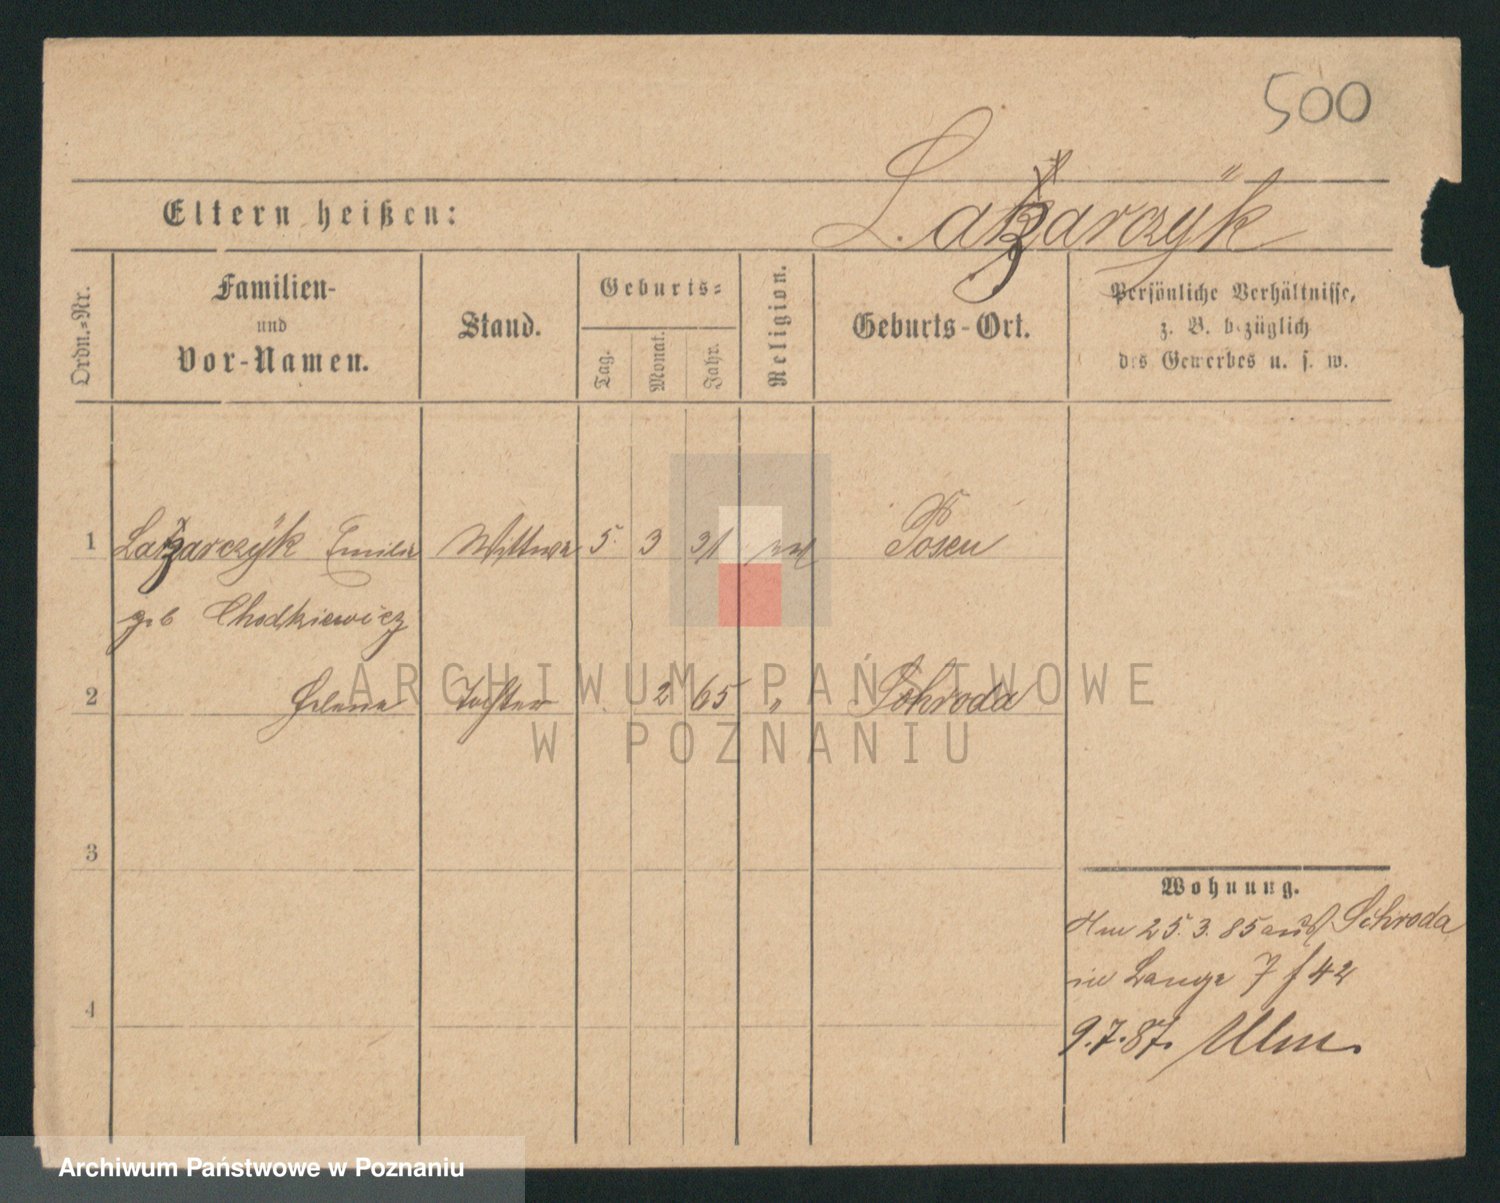 500
Eltern heißen:
Lazarczÿk
Ordn.=Nr.
Familien-
und
Vor-Namen.
Stand.
Geburts=
Tag.
Monat.
Jahr.
Religion.
Geburts-Ort.
Persönliche Verhältnisse,
z. B. bezüglich
des Gewerbes u. s. w.
1 Lazarczÿk Emilie Wittwe 5. 3 31 Posen
geb Chodkiewicz
2 Helene Tochter 2 65 " Schroda
3
4
Wohnung.
25. 3. 85 aus Schroda
in Lange 7 f 42
9.7.87. Ulm.
ARCHIWUM PAŃSTWOWE
W POZNANIU
Archiwum Państwowe w Poznaniu